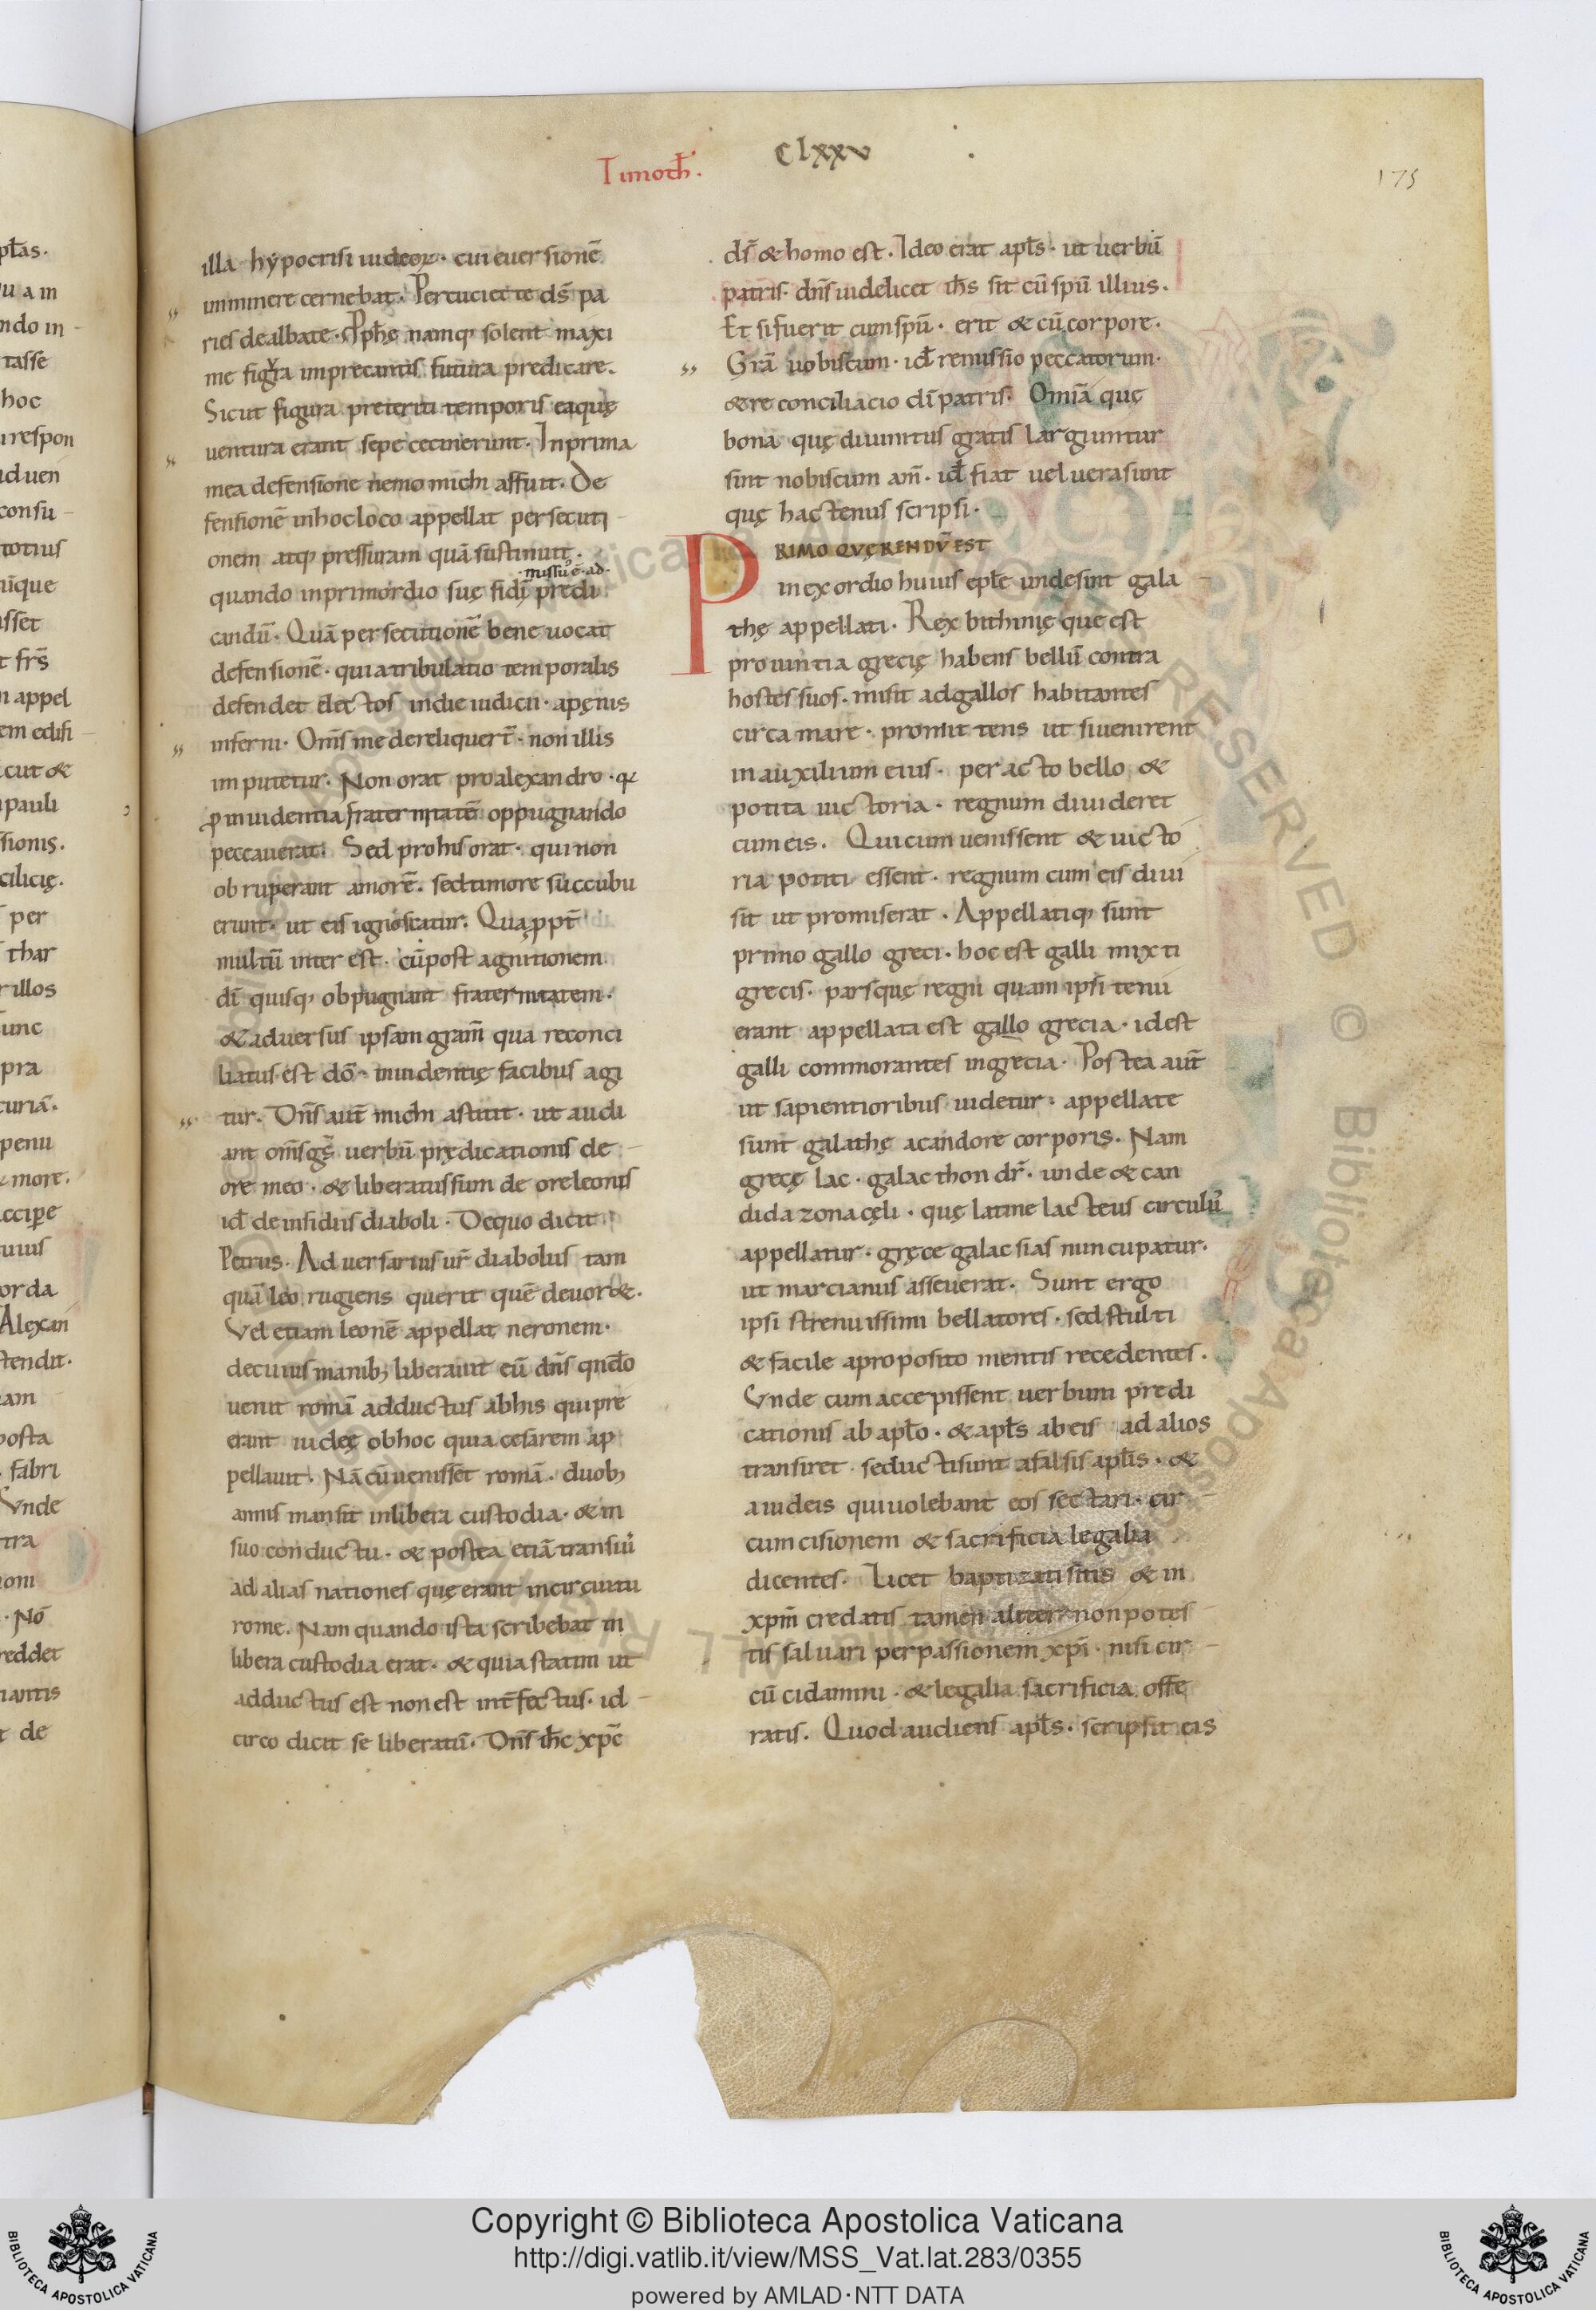 Timoth̄.
CLXXV
175
illa hypocrisi iudeoꝝ· cui euersionē
imminere cernebat· Percuciet te ds̄ pa
ries dealbate· Ꝓphę namq; solent maxi
me figura imprecantis futura predicare.
Sicut figura preteriti temporis ea quę
uentura erant sepe cecinerunt· In prima
mea defensione nemo michi affuit. De
fensionē in hoc loco appellat persecuti
onem atq; pressuram quā sustinuit·
·missus ē· ad·
quando in primordio suę fidei predi
candū· Quā persecutionē bene uocat
defensionē· quia tribulatio temporalis
defendet electos in die iudicii· a pęnis
inferni· Oms̄ me dereliquert̄· non illis
imputetur· Non orat pro alexandro· q
ꝓ inuidentia fraternitatē oppugnando
peccauerat· Sed pro his orat· qui non
ob ruperant amorē· sed timore succubu
erunt· ut eis ignoscatur. Quaꝓpt̄
multū interest· cū post agnitionem
dī quisq; obpugnant fraternitatem·
& aduersus ipsam gram̄ qua reconci
liatus est dō· inuidentię facibus agi
tur. Dn̄s aut̄ michi astitit· ut audi
ant om̄s gs̄ uerbū prędicationis de
ore meo· & liberatus sum de ore leonis
id̄ de insidiis diaboli· De quo dicit
Petrus· Aduersarius ur̄ diabolus tam
quā leo rugiens querit quē deuor&·
Vel etiam leonē appellat neronem·
de cuius manib; liberauit eū dn̄s qn̄do
uenit romā adductus ab his qui pre
erant iudeę ob hoc quia cesarem ap
pellauit· Nā cū uenissēt romā· duob;
annis mansit in libera custodia· & in
suo conductu· & postea etiā transiuit
ad alias nationes quę erant in circuitu
rome. Nam quando ista scribebat in
libera custodia erat· & quia statim ut
adductus est non est int̄fectus· id
circo dicit se liberatū· Dn̄s ih̄c xp̄c
ds̄ & homo est· Ideo erat apl̄s· ut uerbū
patris· dn̄s uidelicet ih̄s sit cū spū illius.
Et si fuerit cum spū· erit & cū corpore·
Gr̄a uobiscum· id̄ remissio peccatorum·
& reconciliacio dī patris· Omiā quę
bona quę diuinitus gratis larguntur
sint nobiscum am̄· id̄ fiat uel uera sunt
quę hactenus scripsi·
PRIMO QVĘRENDŪ EST
in exordio huius eplę unde sint gala
thę appellati· Rex bithinię que est
prouintia grecię habens bellū contra
hostes suos· misit ad gallos habitantes
circa mare· promittens ut si uenirent
in auxilium eius· peracto bello &
potita uictoria· regnum diuideret
cum eis· Qui cum uenissent & uicto
ria potiti essent· regnum cum eis diui
sit ut promiserat· Appellatiq; sunt
primo gallo greci· hoc est galli mixti
grecis· parsquę regni quam ipsi tenu
erant appellata est gallo grecia· id est
galli commorantes in grecia· Postea aut̄
ut sapientioribus uidetur· appellate
sunt galathę a candore corporis. Nam
grecę lac· galacthon dr̄· unde & can
dida zona cęli· quę latine lacteus circulus
appellatur· gręce galacsias nuncupatur·
ut marcianus asseuerat· Sunt ergo
ipsi strenuissimi bellatores· sed stulti
& facile a proposito mentis recedentes·
Vnde cum accepissent uerbum predi
cationis ab aplo· & apl̄s ab eis ad alios
transiret· seducti sunt a falsis aplīs· &
a iudeis qui uolebant eos sectari· cir
cumcisionem & sacrificia legalia
dicentes· Licet baptizati sitis & in
xpm̄ credatis tamen aliter non potes
tis saluari per passionem xpī· nisi cir
cūcidamini· & legalia sacrificia offe
ratis. Quod audiens apl̄s· scripsit eis
Copyright © Biblioteca Apostolica Vaticana
http://digi.vatlib.it/view/MSS_Vat.lat.283/0355
powered by AMLAD·NTT DATA
BIBLIOTECA APOSTOLICA VATICANA
BIBLIOTECA APOSTOLICA VATICANA